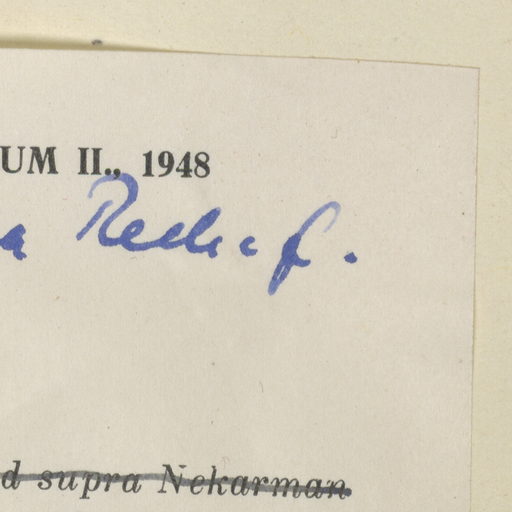 UM II., 1948
a Rech. f.
d supra Nekarman